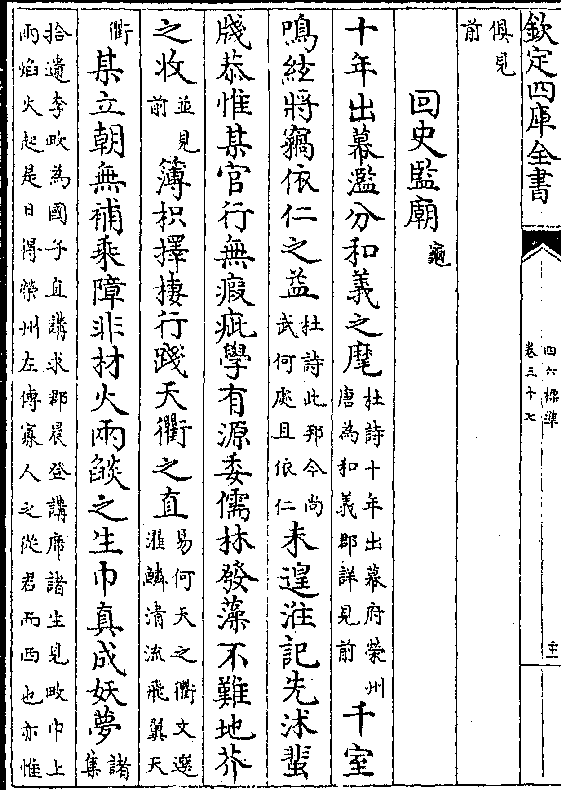 欽定四庫全書
四六標準
卷三十七
俱見
前
回史監廟
十年出幕濫分和義之麾杜詩十年出幕府榮州
唐為和義郡詳見前千室
鳴絃將竊依仁之益杜詩此邦今尚
武何處且依仁未遑注記先沐蜚
牋恭惟某官行無瑕疵學有源委儒林發藻不難地芥
之收並見
前簿枳擇棲行踐天衢之直易何天之衢文選
濯鱗清流飛翼天
衢某立朝無補乘障非材火兩燄之生巾真成妖夢諸
集
拾遺李畋為國子直講求郡晨登講席諸生見畋巾上
兩焰火起是日得榮州左傳寡人之從君而西也亦惟